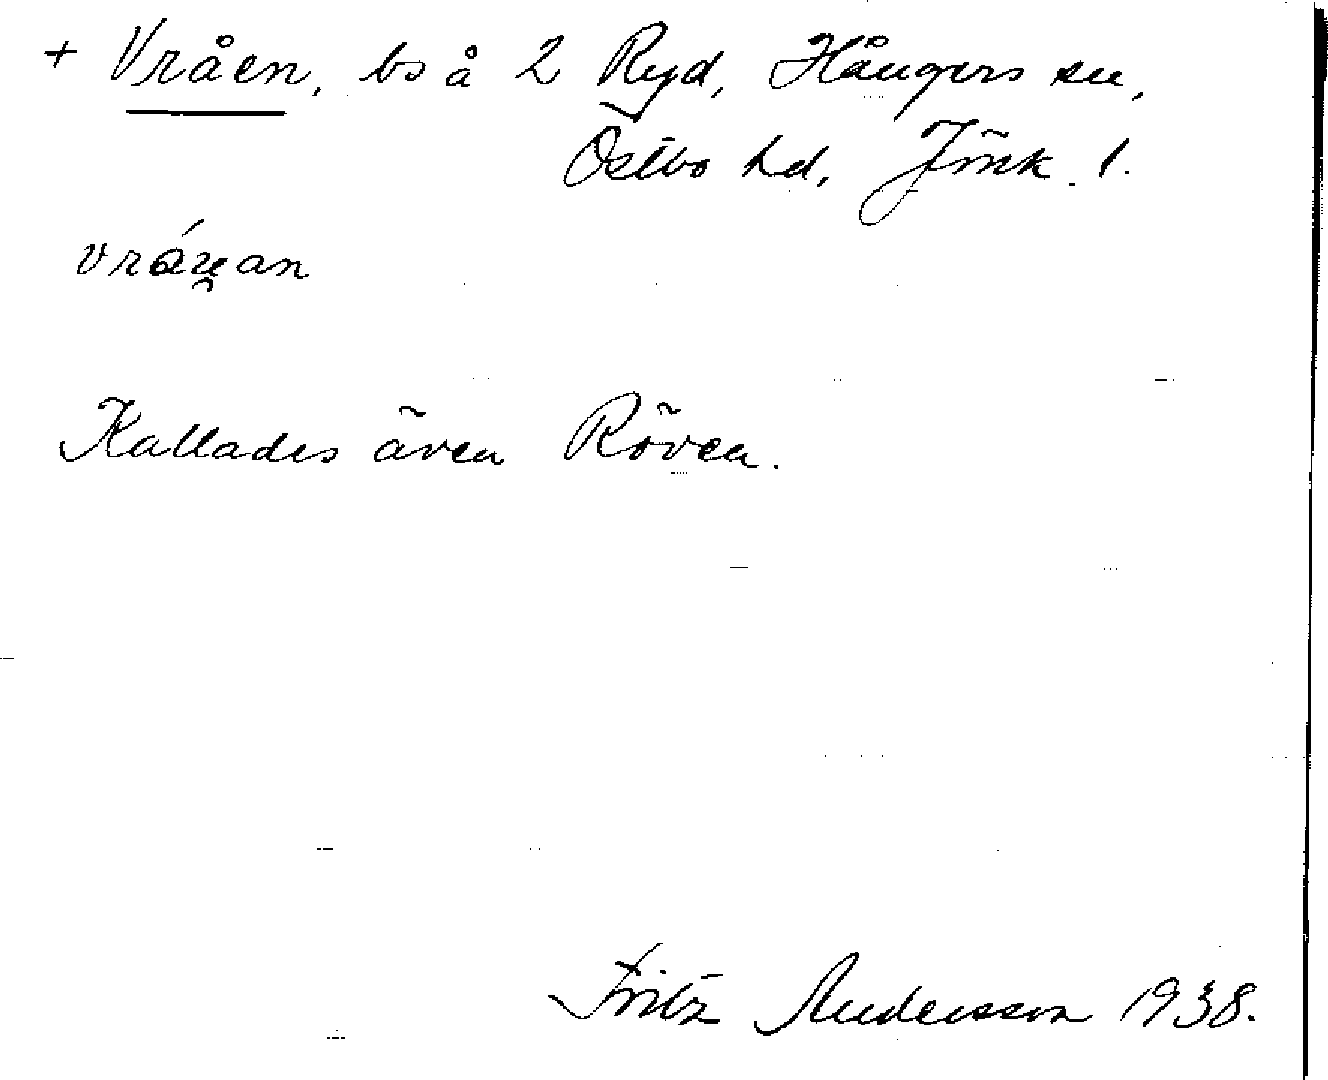 + Vråen, bs å 2 Ryd, Hångers sn,
Östbo hd, Jönk. l.
Kallades även Röven.
Fritz Andersson 1938.